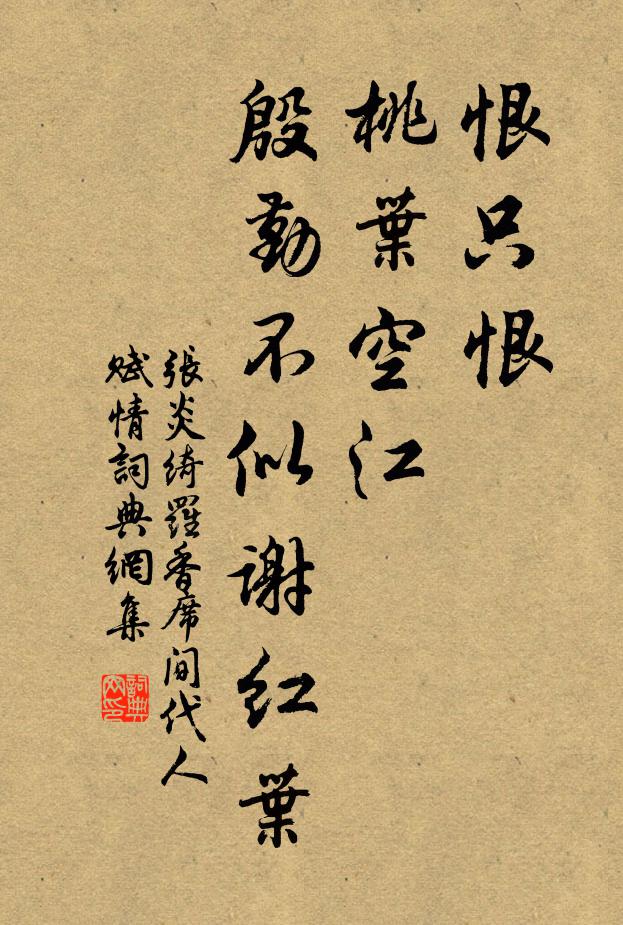 恨只恨
桃葉空江
殷勤不似谢红葉
張炎綺羅香席间代人
赋情詞典網集
詞典